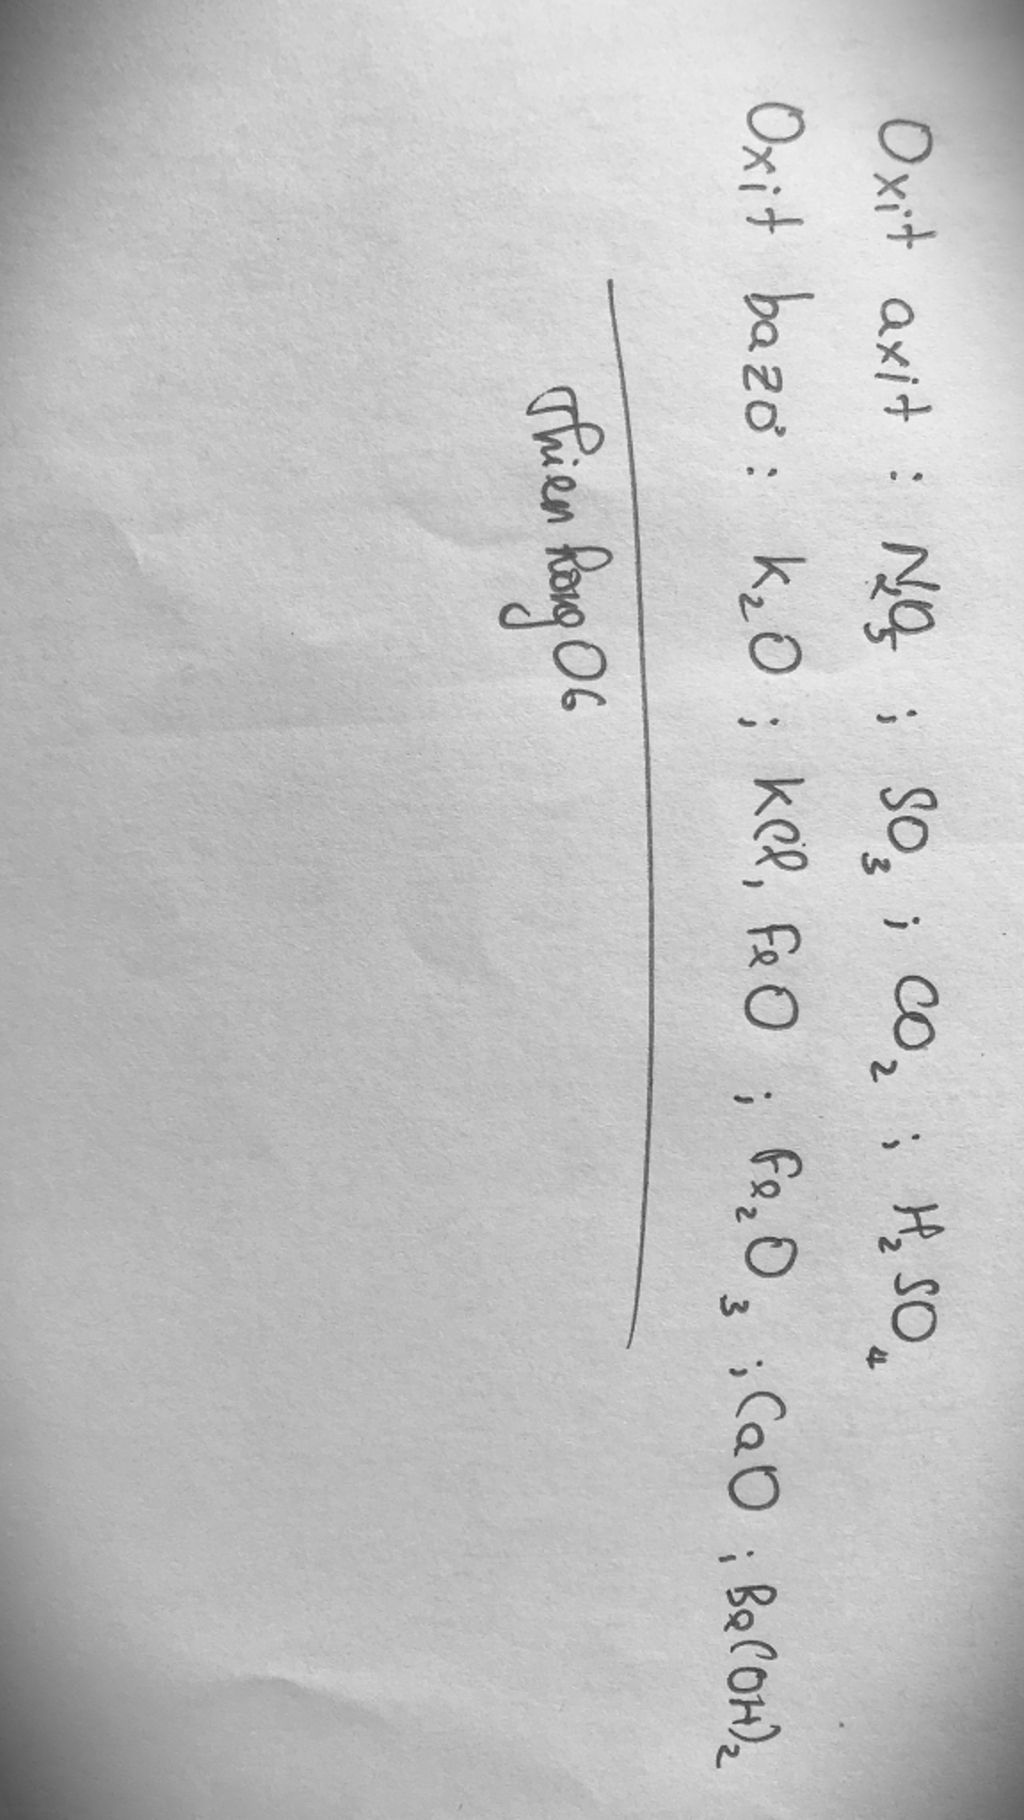 Oxit axit : N₂O₅ ; SO₃ ; CO₂ ; H₂SO₄
Oxit bazơ : K₂O ; KCl, FeO ; Fe₂O₃ ; CaO ; Ba(OH)₂
Thienhong06